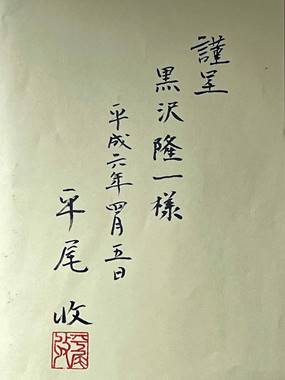 謹呈
黒沢隆一様
平成六年四月五日
平尾収